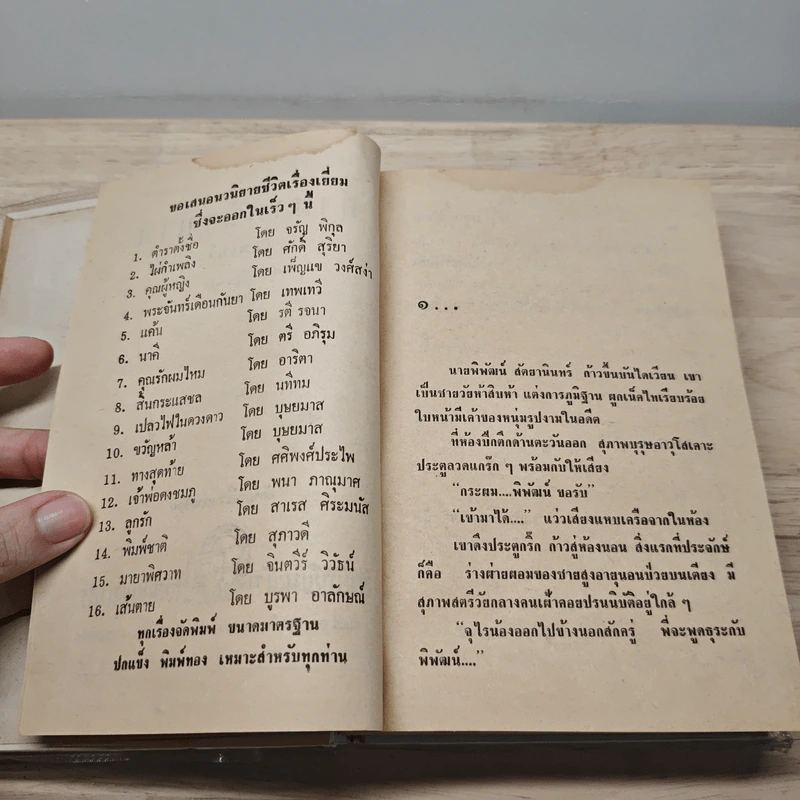 ขอเสนอนวนิยายชีวิตเรื่องเยี่ยม
ซึ่งจะออกในเร็ว ๆ นี้
1. ตำราตั้งชื่อ โดย จรัญ พิกุล
2. ไผ่กำเพลิง โดย ศักดิ์ สุริยา
3. คุณผู้หญิง โดย เพ็ญแข วงศ์สง่า
4. พระจันทร์เดือนกันยา โดย เทพเทวี
5. แค้น โดย รตี รจนา
6. นาคี โดย ตรี อภิรุม
7. คุณรักผมไหม โดย อาริตา
8. สิ้นกระแสชล โดย นทีทม
9. เปลวไฟในดวงดาว โดย บุษยมาส
10. ขวัญหล้า โดย บุษยมาส
11. ทางสุดท้าย โดย ศศิพงศ์ประไพ
12. เจ้าพ่อดงชมภู โดย พนา ภาณุมาศ
13. ลูกรัก โดย สาเรส ศิระมนัส
14. พิมพ์ชาติ โดย สุภาวดี
15. มายาพิศวาท โดย จินตวีร์ วิวัธน์
16. เส้นตาย โดย บูรพา อาลักษณ์
ทุกเรื่องจัดพิมพ์ ขนาดมาตรฐาน
ปกแข็ง พิมพ์ทอง เหมาะสำหรับทุกท่าน
๑...
นายพิพัฒน์ สัตยานินทร์ ก้าวขึ้นบันไดเวียน เขา
เป็นชายวัยห้าสิบห้า แต่งการภูมิฐาน ผูกเน็คไทเรียบร้อย
ใบหน้ามีเค้าของหนุ่มรูปงามในอดีต
ที่ห้องปีกตึกด้านตะวันออก สุภาพบุรุษอาวุโสเคาะ
ประตูลวดแกร๊ก ๆ พร้อมกับให้เสียง
“กระผม....พิพัฒน์ ขอรับ”
“เข้ามาได้....” แว่วเสียงแหบเครือจากในห้อง
เขาดึงประตูกริ๊ก ก้าวสู่ห้องนอน สิ่งแรกที่ประจักษ์
ก็คือ ร่างผ่ายผอมของชายสูงอายุนอนป่วยบนเตียง มี
สุภาพสตรีวัยกลางคนเฝ้าคอยปรนนิบัติอยู่ใกล้ ๆ
“จุไรน้องออกไปข้างนอกสักครู่ พี่จะพูดธุระกับ
พิพัฒน์....”